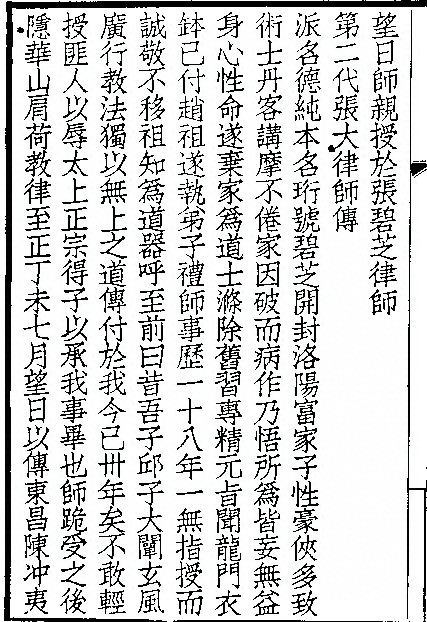 望日師親授於張碧芝律師
第二代張大律師傳
派名德純本名珩號碧芝開封洛陽富家子性豪俠多致
術士丹客講摩不倦家因破而病作乃悟所為皆妄無益
身心性命遂棄家為道士滌除舊習專精元㫖聞龍門衣
鉢已付趙祖遂執弟子禮師事歷一十八年一無指授而
誠敬不移祖知為道器呼至前曰昔吾子邱子大闡玄風
廣行教法獨以無上之道傳付於我今已卅年矣不敢輕
授匪人以辱太上正宗得子以承我事畢也師跪受之後
隱華山肩荷教律至正丁未七月望日以傳東昌陳冲夷